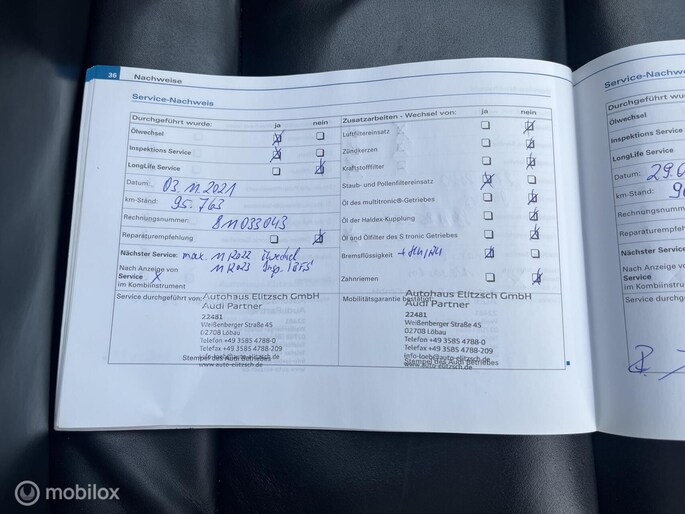 36 Nachweise
Service-Nachweis
Durchgeführt wurde: ja nein
Ölwechsel
Inspektions Service
LongLife Service
Datum: 03.11.2021
km-Stand: 95.763
Rechnungsnummer: 811033043
Reparaturempfehlung
Nächster Service: max. 11/2022 Ölwechsel
Nach Anzeige von 11/2023 Insp.
Service X
im Kombiinstrument
Service durchgeführt von:
Autohaus Elitzsch GmbH
Audi Partner
22481
Weißenberger Straße 45
02708 Löbau
Telefon +49 3585 4788-0
Telefax +49 3585 4788-209
info-loeb@auto-elitzsch.de
Stempel des Audi Betriebes
www.auto-elitzsch.de
Zusatzarbeiten - Wechsel von: ja nein
Luftfiltereinsatz
Zündkerzen
Kraftstofffilter
Staub- und Pollenfiltereinsatz
Öl des multitronic®-Getriebes
Öl der Haldex Kupplung
Öl und Ölfilter des S tronic Getriebes
Bremsflüssigkeit
Zahnriemen
Mobilitätsgarantie bestätigt:
Autohaus Elitzsch GmbH
Audi Partner
22481
Weißenberger Straße 45
02708 Löbau
Telefon +49 3585 4788-0
Telefax +49 3585 4788-209
info-loeb@auto-elitzsch.de
Stempel des Audi Betriebes
www.auto-elitzsch.de
Service-Nachw
Durchgeführt wu
Ölwechsel
Inspektions Servic
LongLife Service
Datum: 29.0
km-Stand: 90
Rechnungsnumm
Reparaturempfeh
Nächster Service:
Nach Anzeige von
Service
im Kombiinstrum
Service durchge
mobilox